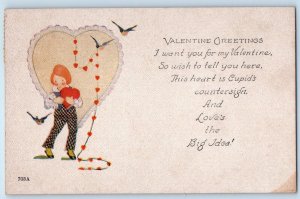 VALENTINE GREETINGS
I want you for my Valentine,
So wish to tell you here,
This heart is Cupid's
countersign
And
Love's
the
Big Idea!
703A